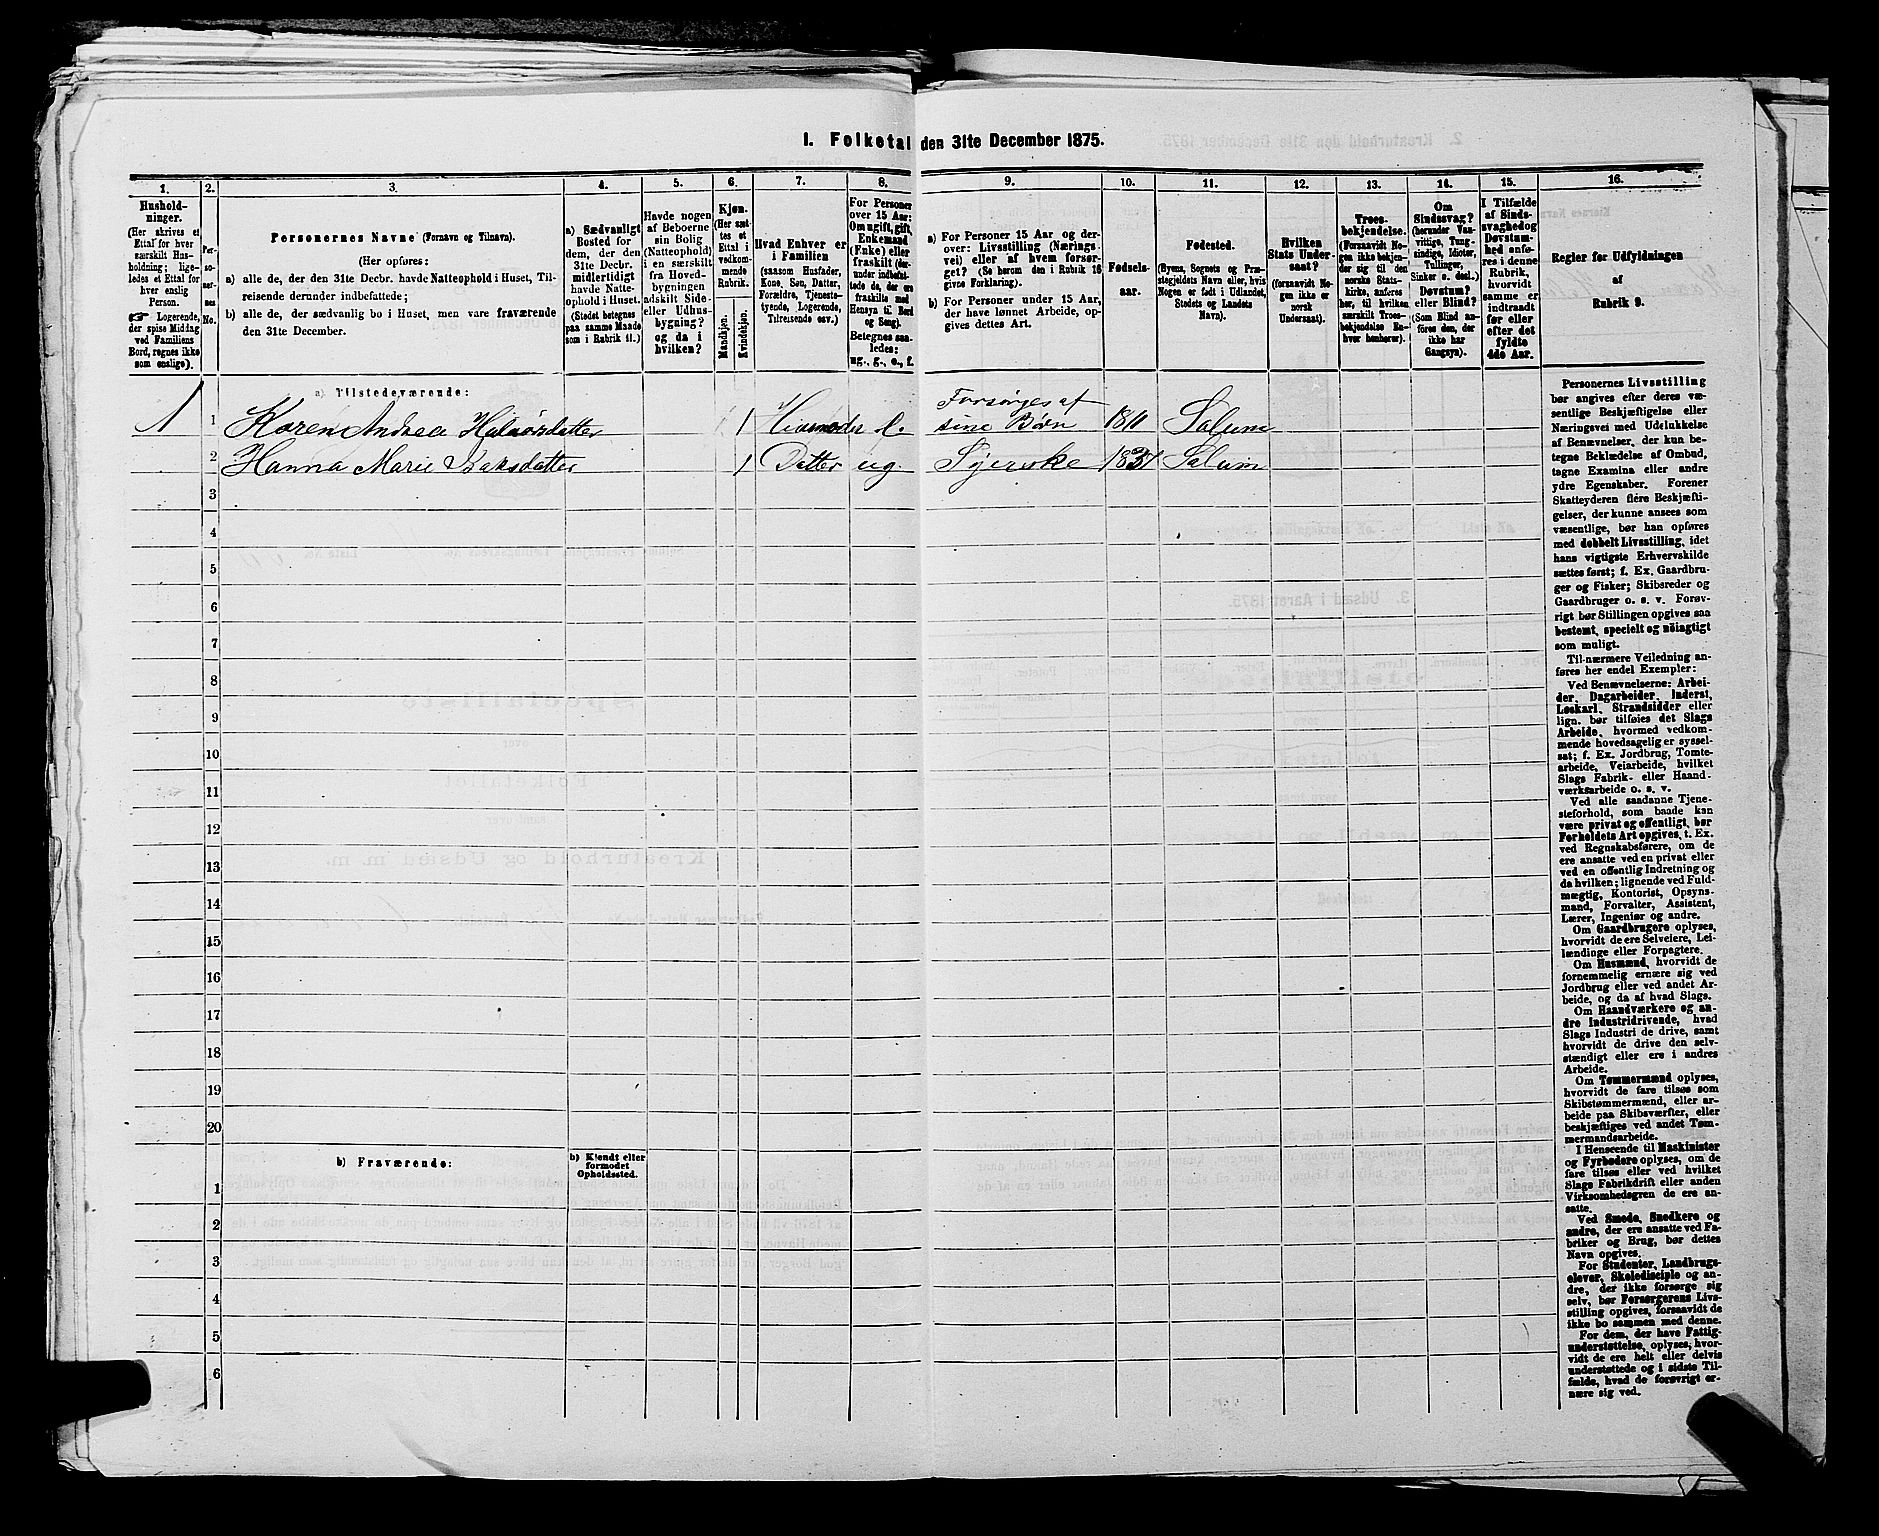 1. Folketal den 31te December 1875.
1.
2.
3.
4.
5.
6.
7.
8.
9.
10.
11.
12.
13.
14.
15.
16.
Hushold-
ninger.
(Her skrives et
Ettal for hver
særskilt Hus-
holdning; lige-
ledes et Ettal for
hver enslig
Person.
☞ Logerende,
der spise Middag
ved Familiens
Bord, regnes ikke
som enslige).
Per-
so-
ner-
nes
No.
Personernes Navne (Fornavn og Tilnavn).
(Her opføres:
a) alle de, der den 31te Decbr. havde Natteophold i Huset, Til-
reisende derunder indbefattede;
b) alle de, der sædvanlig bo i Huset, men vare fraværende
den 31te December.
a) Sædvanligt
Bosted for
dem, der den
31te Decbr.
midlertidigt
havde Natte-
ophold i Huset.
(Stedet betegnes
paa samme Maade
som i Rubrik 11.)
Havde nogen
af Beboerne
sin Bolig
(Natteophold)
i en særskilt
fra Hoved-
bygningen
adskilt Side-
eller Udhus-
bygning?
og da i
hvilken?
Kjøn.
(Her sæt-
tes et
Ettal i
vedkom-
mende
Rubrik.
Mandkjøn.
Kvindekjøn.
Hvad Enhver er
i Familien
(saasom Husfader,
Kone, Søn, Datter,
Forældre, Tjeneste-
tyende, Logerende,
Tilreisende osv.)
For Personer
over 15 Aar:
Om ugift, gift,
Enkemand
(Enke) eller
fraskilt (der-
under indbefat-
tede de, der ere
fraskilte med
Hensyn til Bord
og Seng).
Betegnes saa-
ledes:
ug., g., e., f.
a) For Personer 15 Aar og der-
over: Livsstilling (Nærings-
vei) eller af hvem forsør-
get? (Se herom den i Rubrik 16
givne Forklaring).
b) For Personer under 15 Aar,
der have lønnet Arbeide, op-
gives dettes Art.
Fødsels-
aar.
Fødested.
(Byens, Sognets og Præ-
stegjeldets Navn eller, hvis
Nogen er født i Udlandet,
Stedets og Landets
Navn).
Hvilken
Stats Under-
saat?
(forsaavidt No-
gen ikke er
norsk
Undersaat).
Troes-
bekjendelse.
(Forsaavidt No-
gen ikke bekjen-
der sig til den
norske Stats-
kirke, anføres
her, til hvilken
særskilt Troes-
bekjendelse En-
hver henhører).
Om
Sindssvag?
(herunder Van-
vittige, Tung-
sindige, Idioter,
Tullinger,
Sinker o. desl.)
Døvstum?
eller Blind?
(Som Blind an-
føres den, der
ikke har
Gangsyn).
I Tilfælde
af Sinds-
svaghed og
Døvstum-
hed anfø-
res i denne
Rubrik,
hvorvidt
samme er
indtraadt
før eller
efter det
fyldte
4de Aar.
Regler for Udfyldningen
af
Rubrik 9.
a) Tilstedeværende:
1 1 Karen Andrea Halvorsdatter 1 Huusmoder e. Forsørges af
sine Børn 1811 Solum
2 Hanna Marie Isaksdatter 1 Datter ug. Syerske 1851 Solum
3
4
5
6
7
8
9
10
11
12
13
14
15
16
17
18
19
20
b) Fraværende:
b) Kjendt eller
formodet
Opholdssted.
1
2
3
4
5
6
Personernes Livsstilling
bør angives efter deres væ-
sentlige Beskjæftigelse eller
Næringsvei med Udelukkelse
af Benævnelser, der kun be-
tegne Beklædelse af Ombud,
tagne Examina eller andre
ydre Egenskaber. Forener
Skatteyderen flere Beskjæfti-
gelser, der kunne ansees som
væsentlige, bør han opføres
med dobbelt Livsstilling, idet
hans vigtigste Erhvervskilde
sættes først; f. Ex. Gaardbru-
ger og Fisker; Skibsreder og
Gaardbruger o. s. v. Forøv-
rigt bør Stillingen opgives saa
bestemt, specielt og nöiagtigt
som muligt.
Til nærmere Veiledning an-
føres her endel Exempler:
Ved Benævnelserne: Arbei-
der, Dagarbeider, Inderst,
Løskarl, Strandsidder eller
lign. bør tilføies det Slags
Arbeide, hvormed vedkom-
mende hovedsagelig er syssel-
sat; f. Ex. Jordbrug, Tomte-
arbeide, Veiarbeide, hvilket
Slags Fabrik- eller Haand-
værksarbeide o. s. v.
Ved alle saadanne Tjene-
steforhold, som baade kan
være privat og offentligt, bør
Forholdets Art opgives, t. Ex.
ved Regnskabsførere, om de
ere ansatte ved en privat eller
ved en offentlig Indretning og
da hvilken; lignende ved Fuld-
mægtig, Kontorist, Opsyns-
mand, Forvalter, Assistent,
Lærer, Ingeniør og andre.
Om Gaardbrugere oplyses,
hvorvidt de ere Selveiere, Lei-
lændinge eller Forpagtere.
Om Husmænd, hvorvidt de
fornemmelig ernære sig ved
Jordbrug eller ved andet Ar-
beide, og da af hvad Slags.
Om Haandværkere og an-
dre Industridrivende, hvad
Slags Industri de drive, samt
hvorvidt de drive den selv-
stændigt eller ere i andres
Arbeide.
Om Tømmermænd oplyses,
hvorvidt de fare tilsøs som
Skibstømmermænd, eller ar-
beide paa Skibsværfter, eller
beskjæftiges ved andet Tøm-
mermandsarbeide.
I Henseende til Maskinister
og Fyrbødere oplyses, om de
fare tilsøs eller ved hvilket
Slags Fabrikdrift eller anden
Virksomhedsgren de ere an-
satte.
Ved Smede, Snedkere og
andre, der ere ansatte ved Fa-
briker og Brug, bør dettes
Navn opgives.
For Studenter, Landbrugs-
elever, Skoledisciple og an-
dre, der ikke forsørge sig
selv, bør Forsørgerens Livs-
stilling opgives, forsaavidt de
ikke bo sammen med denne.
For dem, der have Fattig-
understøttelse, oplyses, hvor-
vidt de ere helt eller delvis
understøttede og i sidste Til-
fælde, hvad de forøvrigt er-
nære sig ved.